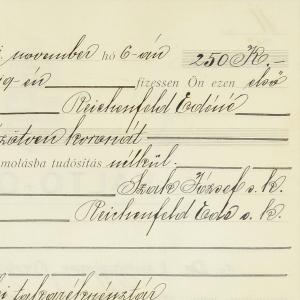 november hó 6-án 250 K.-
19-én fizessen Ön ezen első
Reichenfeld Edéné
ötven koronát
molásba tudósítás nélkül.
Szák József s. k.
Reichenfeld Ede s. k.
takarékpénztár